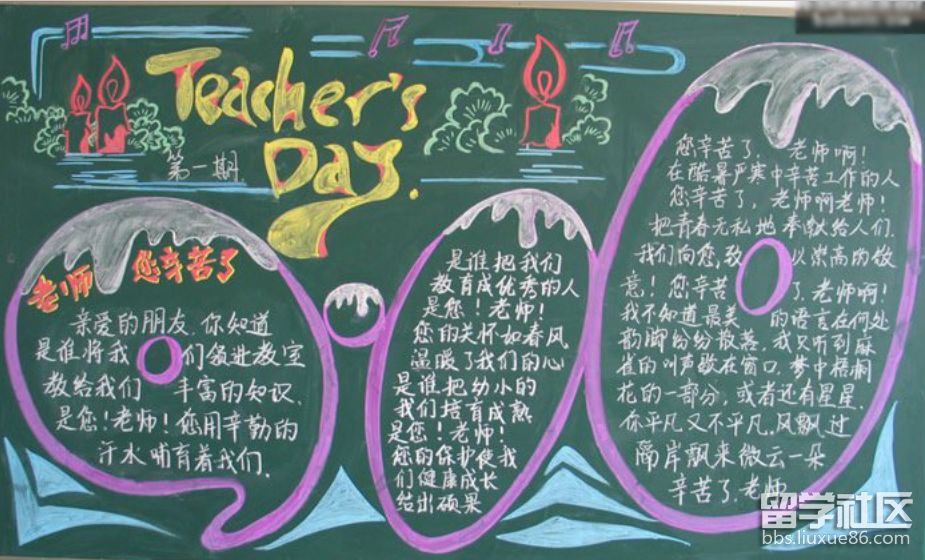 Teacher's
Day.
第一期
老师 您辛苦了
亲爱的朋友.你知道
是谁将我们领进教室
教给我们 丰富的知识.
是您!老师!您用辛勤的
汗水哺育着我们.
是谁把我们
教育成优秀的人
是您!老师!
您的关怀如春风
温暖了我们的心
是谁把幼小的
我们培育成熟
是您!老师!
您的保护使我
们健康成长
结出硕果
您辛苦了, 老师啊!
在酷暑严寒中辛苦工作的人
您辛苦了,老师啊老师!
把青春无私地奉献给人们.
我们向您,致 以崇高的敬
意!您辛苦 了.老师啊!
我不知道最美 的语言在何处
纷纷散落.我只听到麻
雀的叫声歇在窗口.梦中梧桐
花的一部分,或者还有星星.
你平凡又不平凡.风飘过
隔岸飘来微云一朵
辛苦了.老师
留学社区
bbs.liuxue86.com